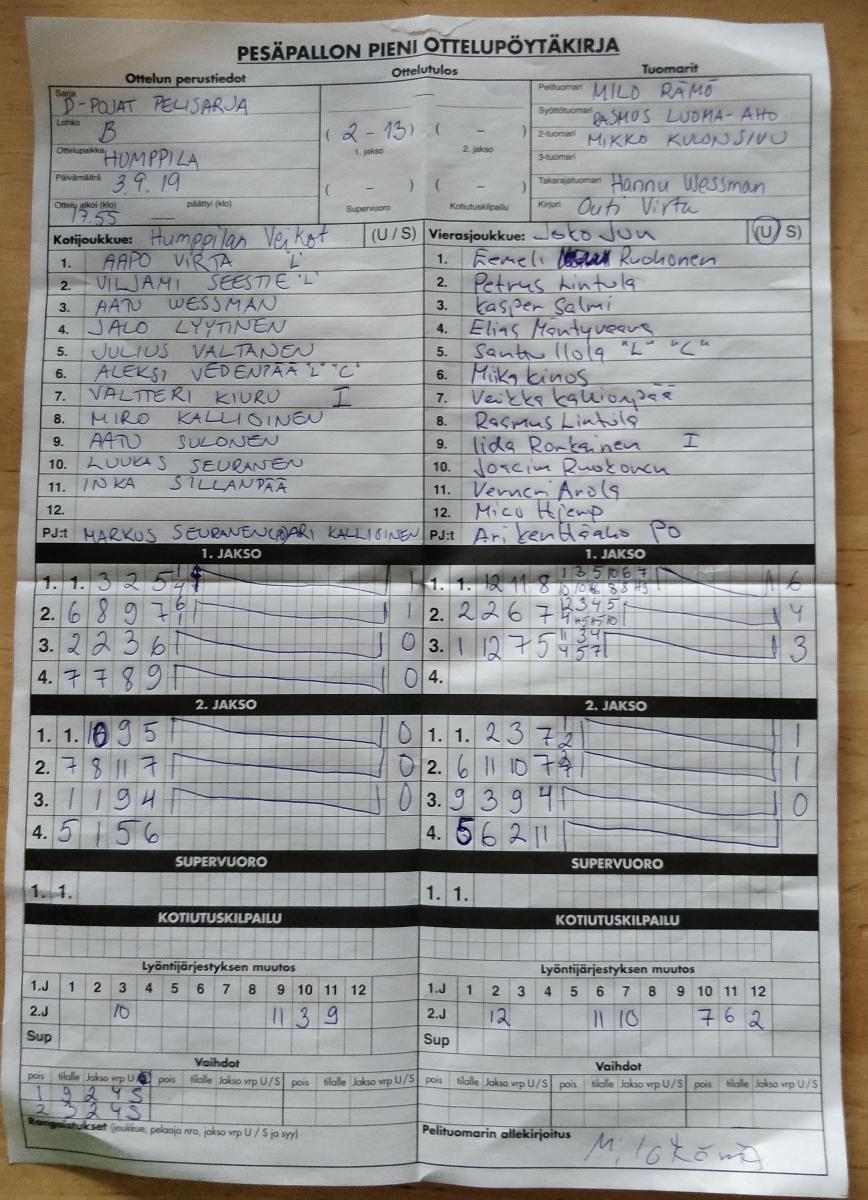 PESÄPALLON PIENI OTTELUPÖYTÄKIRJA
Ottelun perustiedot
Ottelutulos
Tuomarit
Sarja D-POJAT PELISARJA
Lohko B
Ottelupaikka HUMPPILA
Päivämäärä 3.9.19
Ottelu alkoi (klo) 17.55 — päättyi (klo)
( 2 - 13 ) ( - )
1. jakso 2. jakso
( - ) ( - )
Supervuoro Kotiutuskilpailu
Pelituomari MILO RÄMÖ
Syöttötuomari RASMUS LUOMA-AHO
2-tuomari MIKKO KULONSIVU
3-tuomari
Takarajatuomari Hannu Wessman
Kirjuri Outi Virta
Kotijoukkue: Humppilan Veikot (U / S)
1. AAPO VIRTA "L"
2. VILJAMI SEESTIE "L"
3. AATU WESSMAN
4. JALO LYYTINEN
5. JULIUS VALTANEN
6. ALEKSI VEDENPÄÄ "L" "C"
7. VALTTERI KIURU I
8. MIRO KALLIOINEN
9. AATU SULONEN
10. LUUKAS SEURANEN
11. INKA SILLANPÄÄ
12.
PJ:t MARKUS SEURANEN ARI KALLIOINEN
Vierasjoukkue: JoKo Jun (U / S)
1. Eemeli Ruohonen
2. Petrus Lintula
3. Kasper Salmi
4. Elias
5. Santtu Ilola "L" "C"
6. Miika Kinos
7. Veikka Kallionpää
8. Rasmus Lintula
9. Iida Ronkainen I
10. Joacim Ruokonen
11. Verneri Arola
12. Mico
PJ:t Ari PO
1. JAKSO
1. 1. 3 2 5 1
2. 6 8 9 7 1
3. 2 2 3 6 0
4. 7 7 8 9 0
1. JAKSO
1. 1. 12 11 8 1 3 5 10 6 7 6
2. 2 2 6 7 12 3 4 5 4
3. 1 12 7 5 11 3 4 3
4 5 7
4.
2. JAKSO
1. 1. 10 9 5 0
2. 7 8 11 7 0
3. 1 1 9 4 0
4. 5 1 5 6
2. JAKSO
1. 1. 2 3 7 1
2. 6 11 10 7 1
3. 9 3 9 4 0
4. 5 6 2 11
SUPERVUORO
1. 1.
SUPERVUORO
1. 1.
KOTIUTUSKILPAILU
KOTIUTUSKILPAILU
Lyöntijärjestyksen muutos
1.J 1 2 3 4 5 6 7 8 9 10 11 12
2.J 10 11 3 9
Sup
Lyöntijärjestyksen muutos
1.J 1 2 3 4 5 6 7 8 9 10 11 12
2.J 12 11 10 7 6 2
Sup
Vaihdot
pois tilalle Jakso vrp U/S pois tilalle Jakso vrp U/S pois tilalle Jakso vrp U/S
1 9 2 4 S
2 3 2 4 S
Vaihdot
pois tilalle Jakso vrp U/S pois tilalle Jakso vrp U/S pois tilalle Jakso vrp U/S
Rangaistukset (joukkue, pelaaja nro, jakso vrp U / S ja syy)
Pelituomarin allekirjoitus